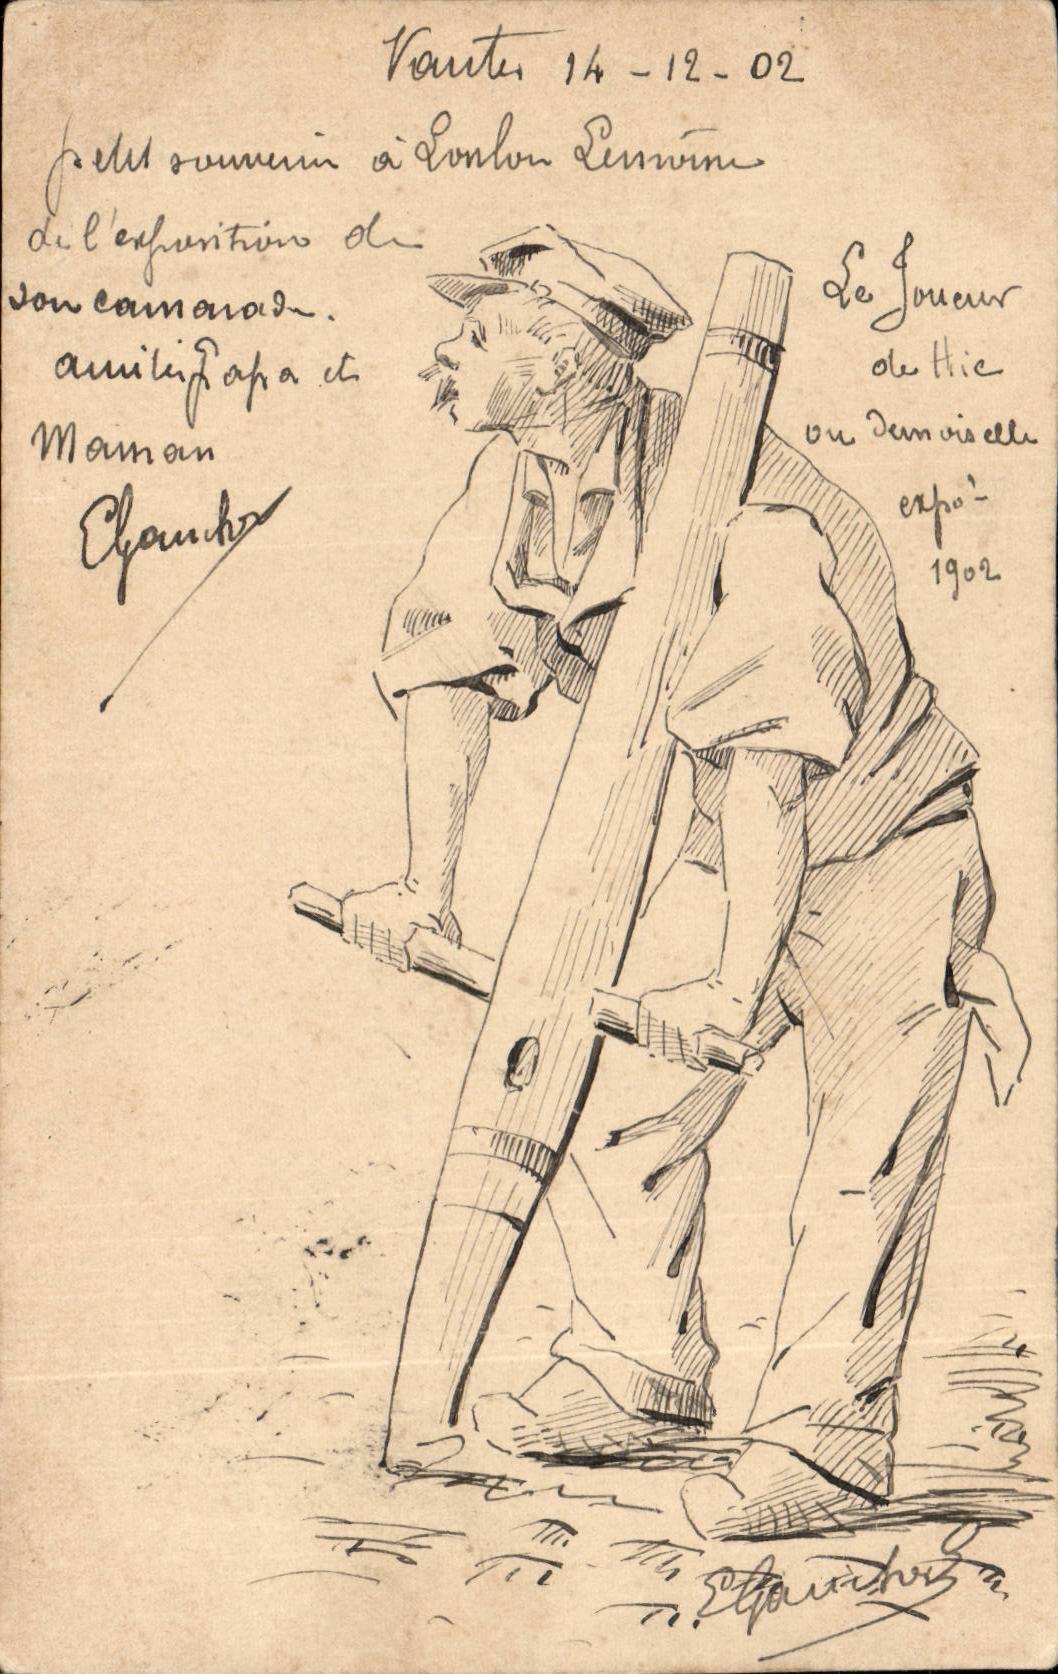 Nantes 14-12-02
petit souvenir à Loulou Lemoine
de l'exposition de
son camarade.
amitiés Papa et
Maman
EGauchor
Le Joueur
de Hie
ou demoiselle
expo-
1902
EGauchor